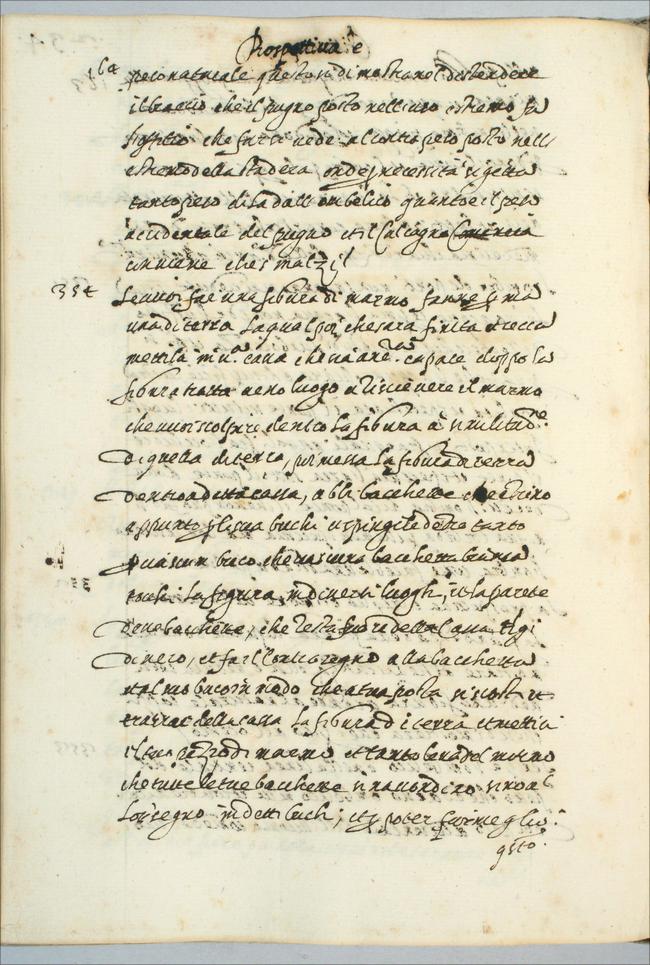 Prospettiva e
164
peso naturale questo si dimostra nel distendere
il braccio che il pugno posto nell'uno estremo fa
l'offitio che far si vede al contro peso posto nello
estremo della stadera, onde necessita si getta
tanto peso di la dall' ombelico quanto è il peso
accidentale del pugno et il calcagno
conviene che s'malzi
354
Se vuoi fare una figura di marmo fanne p.a
una di terra la qual poi che sarà finita et secca
mettila in una cassa che sia an.ra capace doppo la
figura tratta d'esso luogo a ricevere il marmo
che vuoi scolpirci dentro la figura à similitud.e
di quella di terra, poi messa la figura di terra
dentro a detta cassa, abbi bacchette ch'entrino
appunto p li sua buchi e spingile dentro tanto
p ciascun buco che ciascuna bacchetta bianca
tochi la figura in diversi luoghi, et la parte
d'esse bacchette, che resta fuori della cassa tigni
di nero, et fa il contrasegno alla bacchetta
et al suo buco in modo che a tua posta si scontri et
trarrai della cassa la figura di terra et mettivi
il tuo pezzo di marmo et tanto leva del marmo
che tutte le tue bacchette si nascondino sino al
lor segno in detti buchi, et p poter far meglio
q.sto